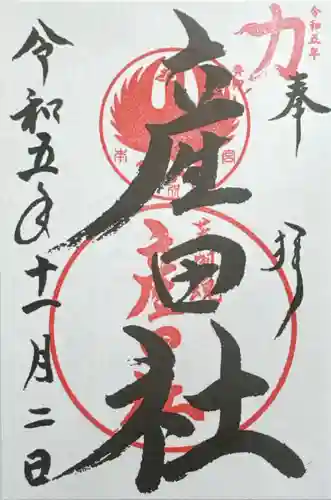 令和五年
力
奉拝
産田社
令和五年十一月二日